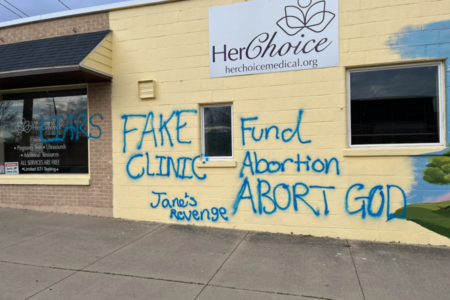 HerChoice
herchoicemedical.org
LIARS
FAKE
CLINIC
Fund
Abortion
ABORT GOD
Jane's
Revenge
• Pregnancy Tests • Ultrasounds
• Additional Resources
ALL SERVICES ARE FREE
•Limited STI Testing•